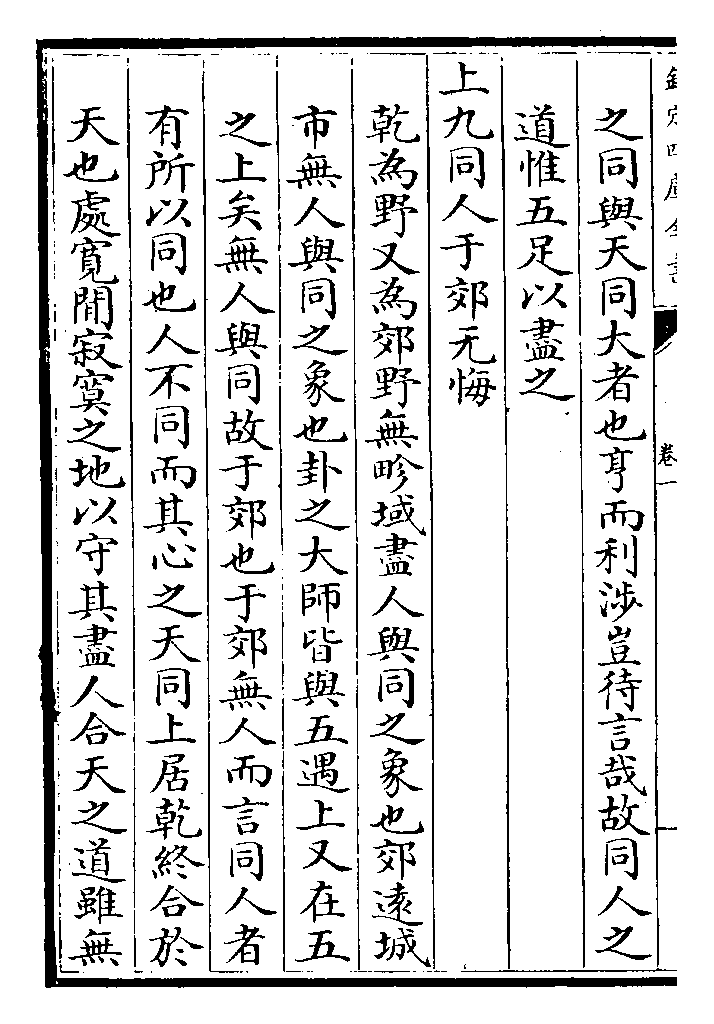 欽定四庫全書
卷一
之同與天同大者也亨而利涉豈待言哉故同人之
道惟五足以盡之
上九同人于郊无悔
乾為野又為郊野無畛域盡人與同之象也郊遠城
市無人與同之象也卦之大師皆與五遇上又在五
之上矣無人與同故于郊也于郊無人而言同人者
有所以同也人不同而其心之天同上居乾終合於
天也處寛閒寂寞之地以守其盡人合天之道雖無